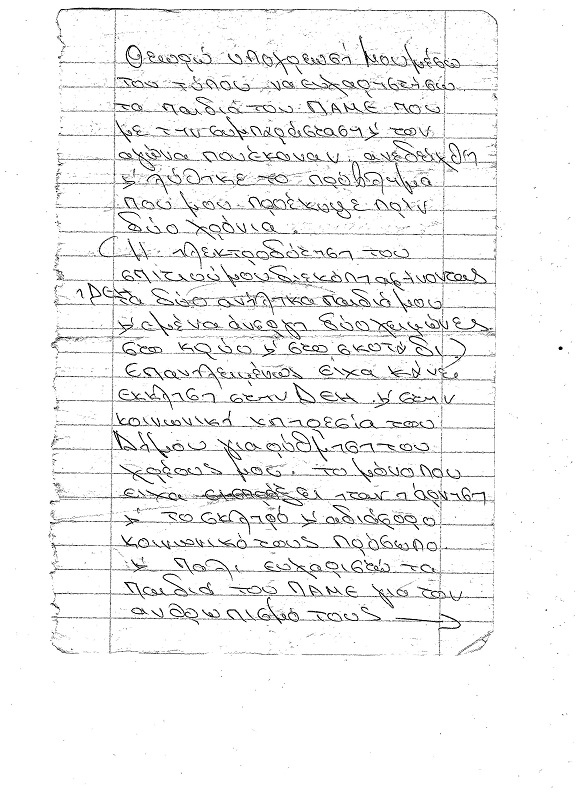 Θεωρώ υποχρεωσή μου μέσω
του τύπου να ευχαριστήσω
τα παιδιά του ΠΑΜΕ που
με την συμπαράσταση κ τον
αγώνα που έκαναν, ανεδείχθη
κ λύθηκε το πρόβλημα
που μου προέκυψε πριν
δύο χρόνια.
(Η ηλεκτροδότηση του
σπιτιού μου διεκόπη αφήνοντας
η ΔΕΗ τα δύο ανήλικα παιδιά μου
κ εμένα άνεργη δύο χειμώνες
στο κρύο κ στο σκοτάδι)
Επανειλημένως είχα κάνει
εκκληση στην ΔΕΗ κ στην
κοινωνική υπηρεσία του
Δήμου για ρύθμιση του
χρέους μου. το μόνο που
είχα ει ηταν η άρνηση
κ το σκληρό κ αδιάφορο
κοινωνικό τους πρόσωπο.
κ παλι ευχαριστώ τα
παιδιά του ΠΑΜΕ για τον
ανθρωπισμό τους